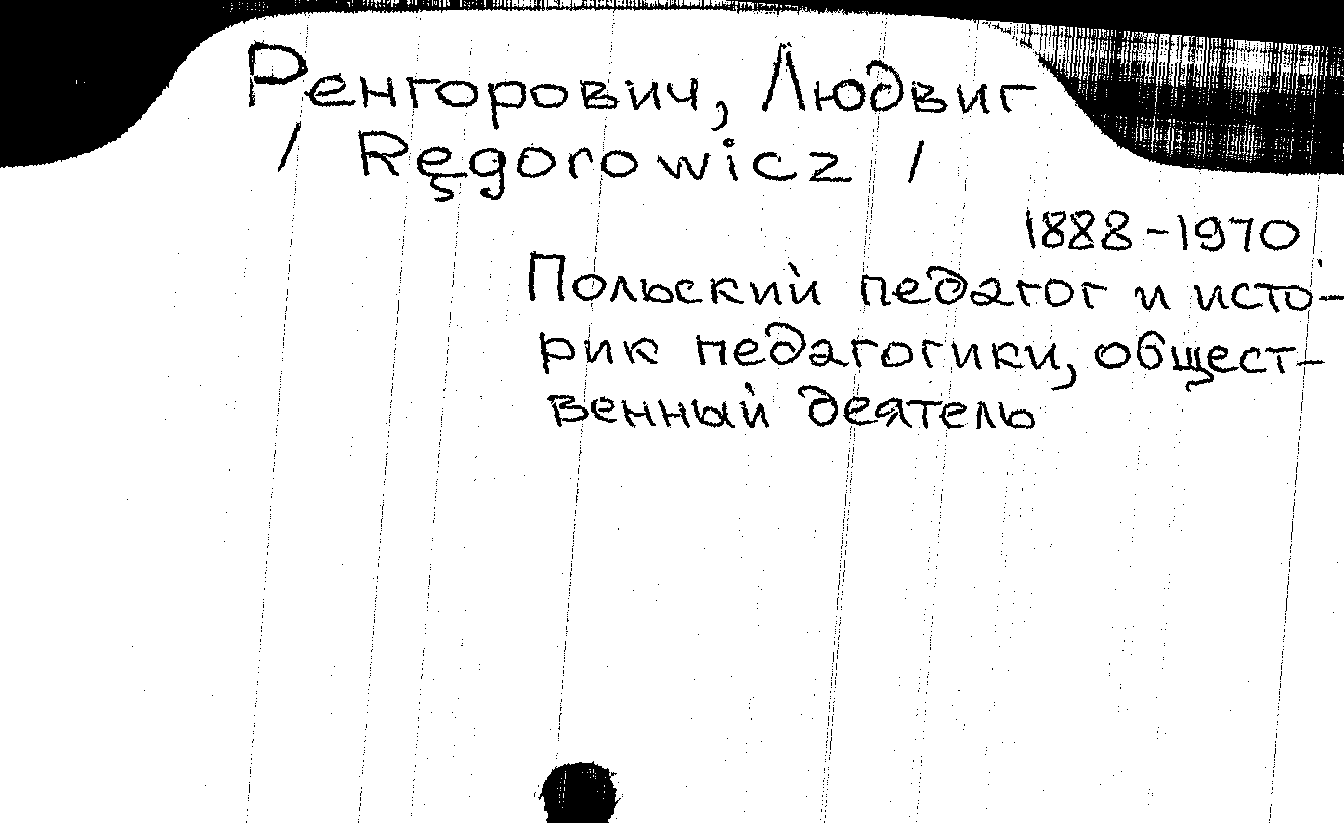 Ренгорович, Людвиг
/ Ręgorowicz /
1888-1970
Польский педагог и исто-
рик педагогики, общест-
венный деятель